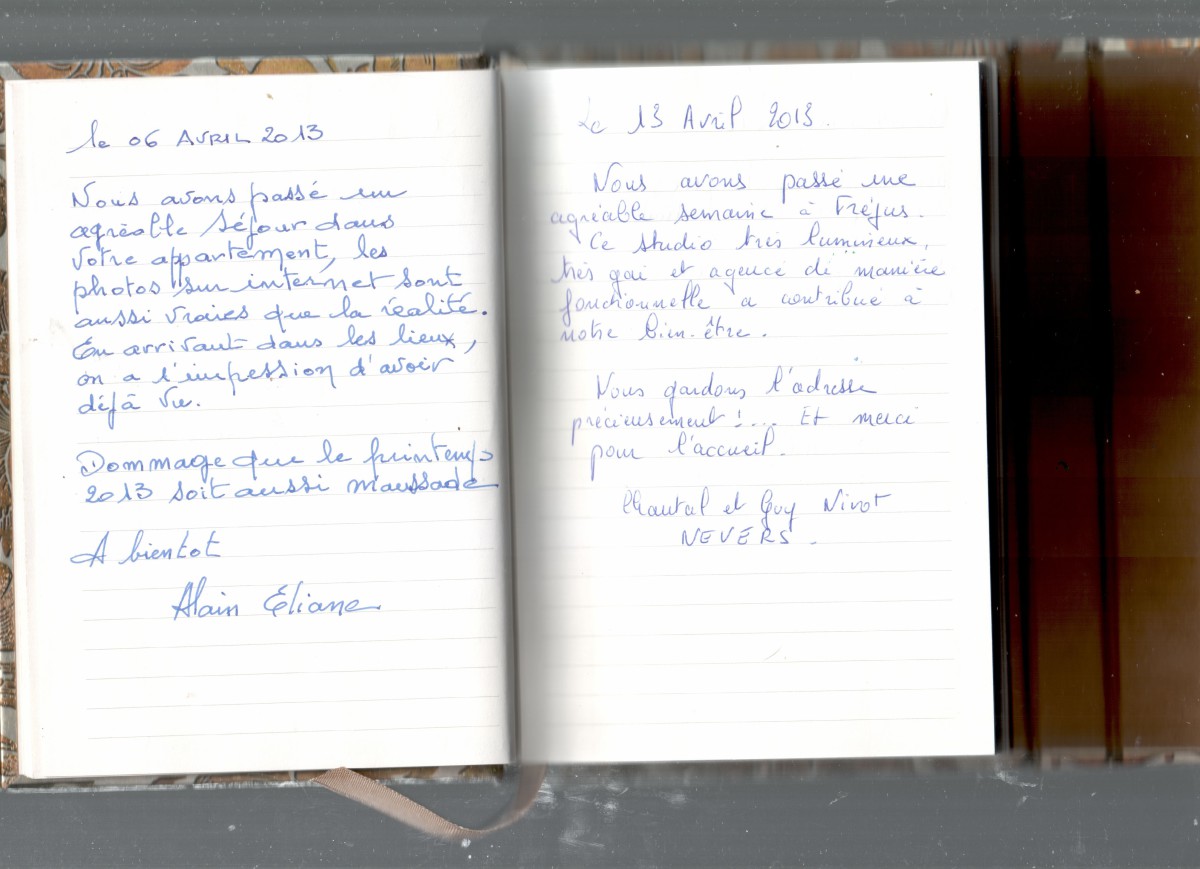 le 06 AVRIL 2013
Nous avons passé un
agréable séjour dans
votre appartement, les
photos sur internet sont
aussi vraies que la réalité.
En arrivant dans les lieux,
on a l'impression d'avoir
déjà vu.
Dommage que le printemps
2013 soit aussi maussade
A bientot
Alain Eliane
Le 13 Avril 2013.
Nous avons passé une
agréable semaine à Fréjus.
Ce studio très lumineux,
très gai et agencé de manière
fonctionnelle a contribué à
notre bien-être.
Nous gardons l'adresse
précieusement !... Et merci
pour l'accueil.
Chantal et Guy Nivot
NEVERS.